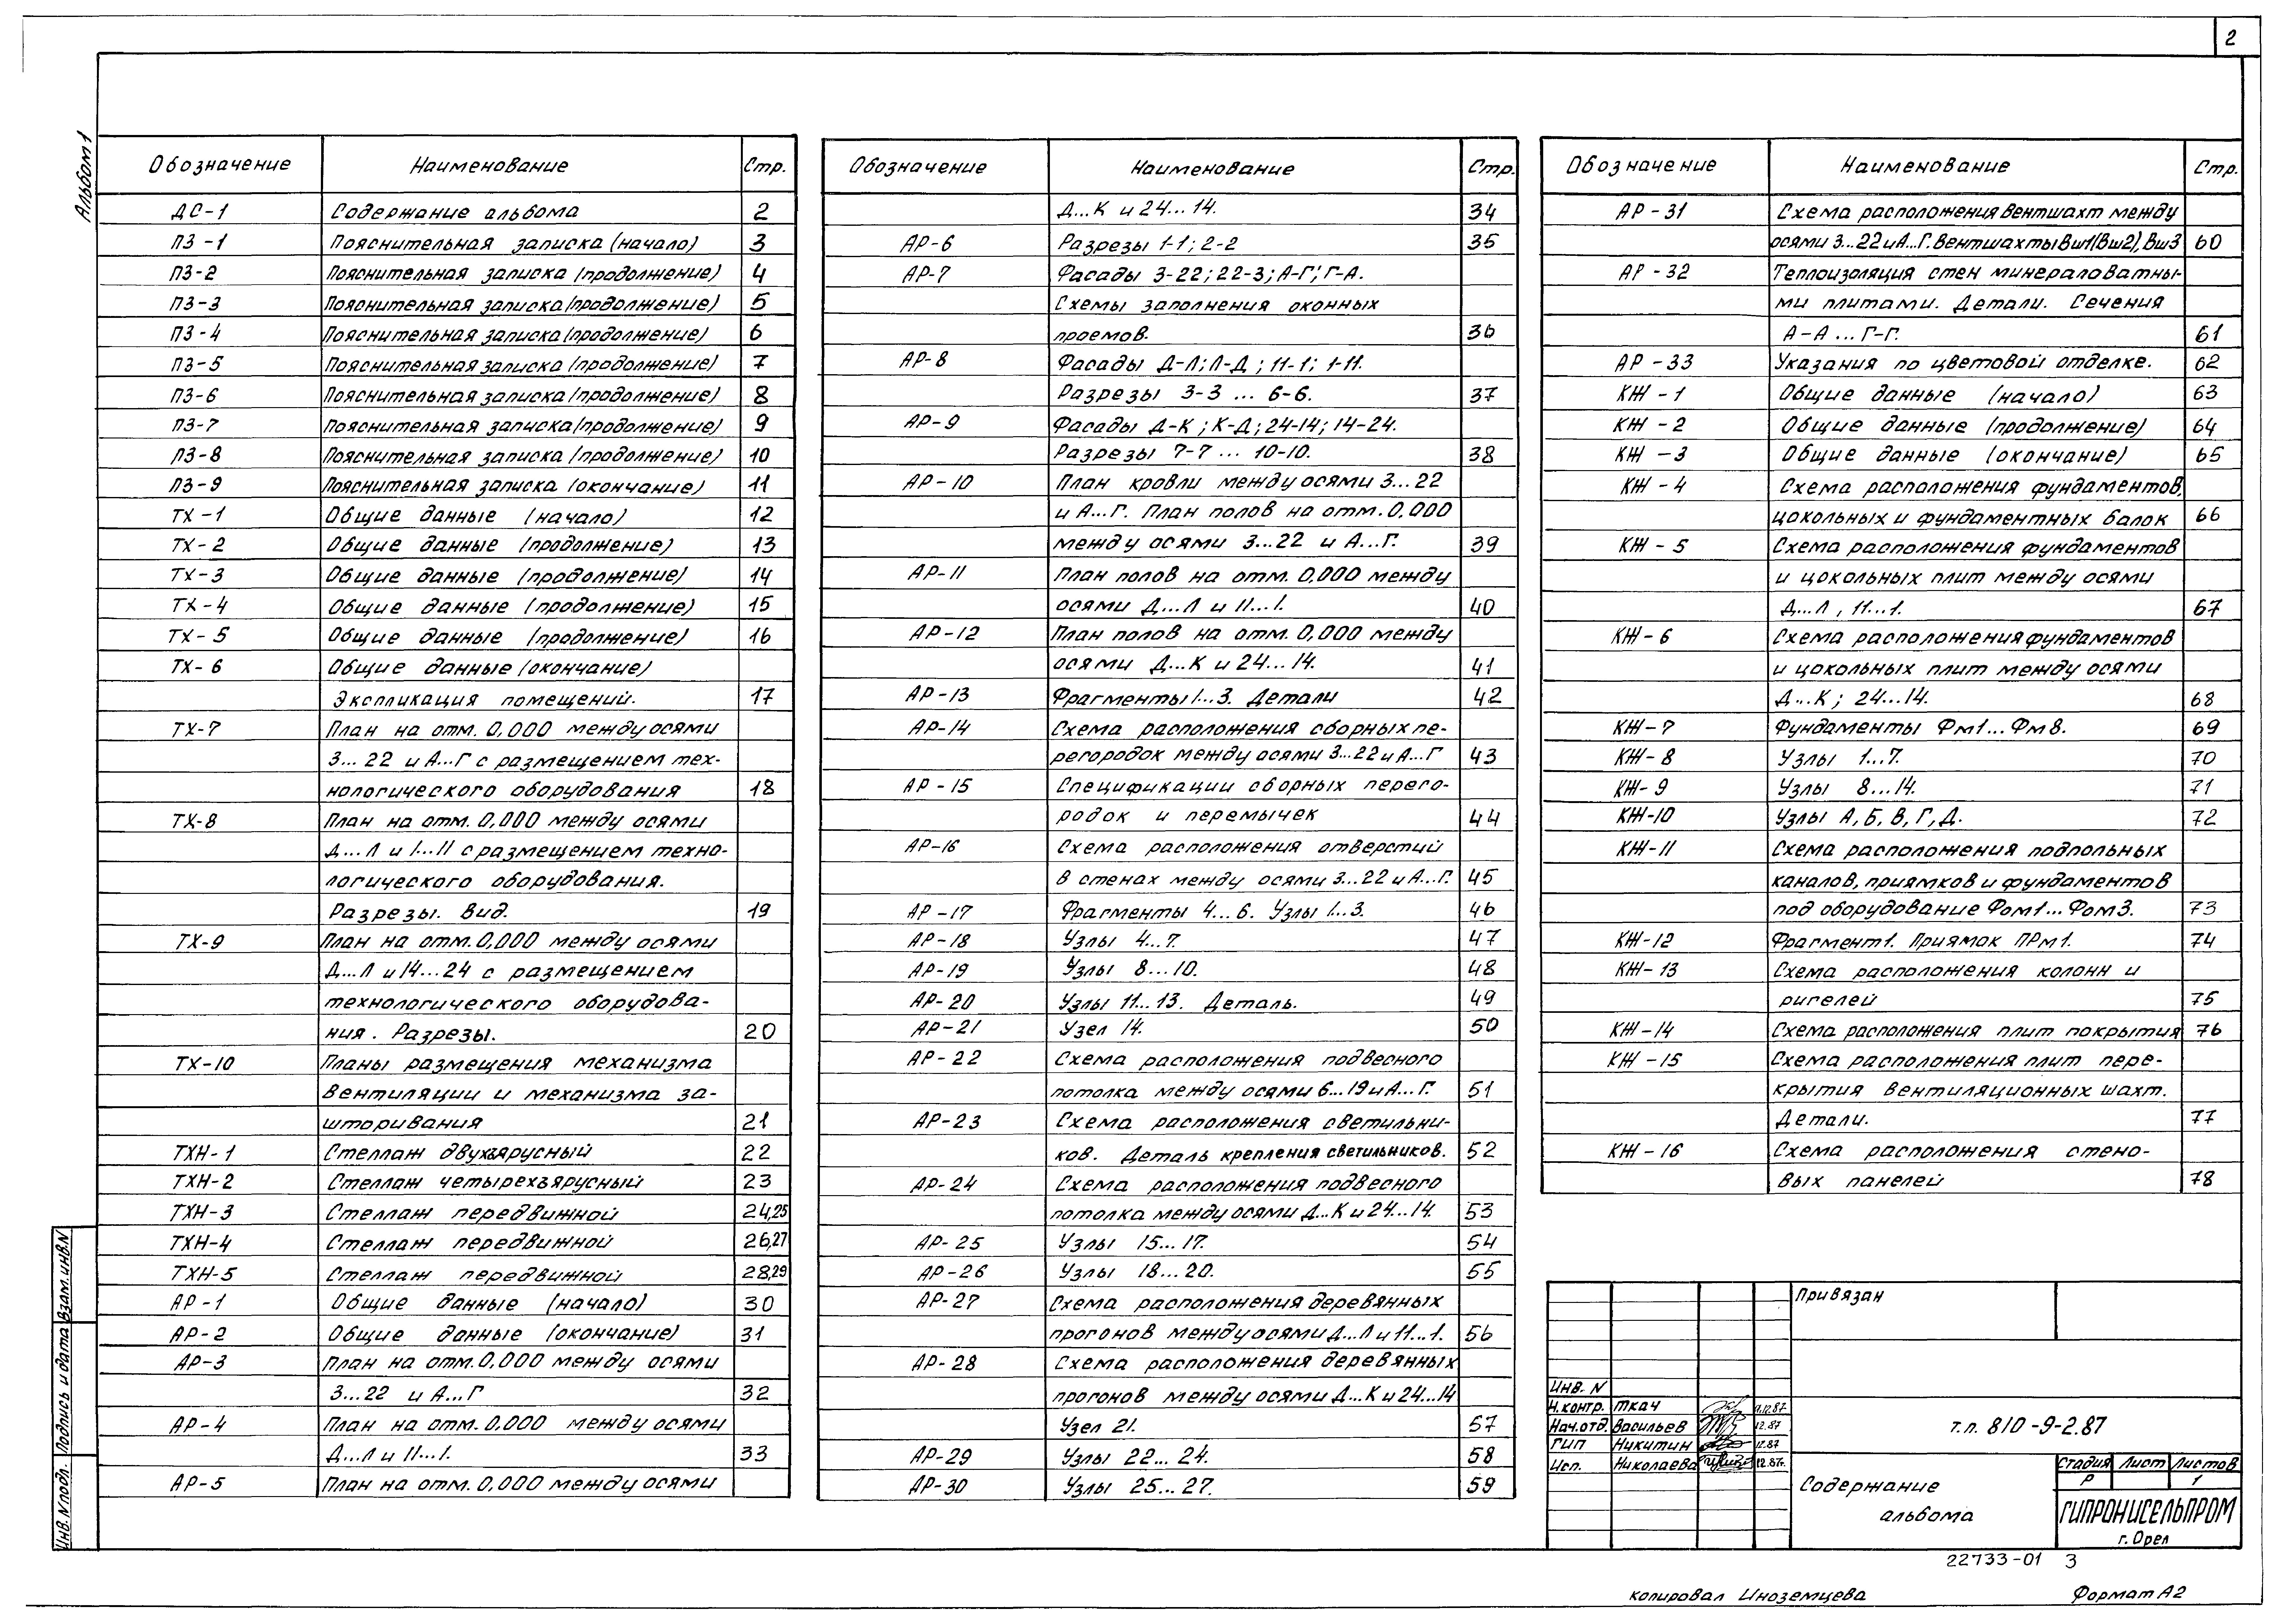 2
Альбом 1
Обозначение Наименование Стр.
ДС-1 Содержание альбома 2
ПЗ-1 Пояснительная записка (начало) 3
ПЗ-2 Пояснительная записка (продолжение) 4
ПЗ-3 Пояснительная записка (продолжение) 5
ПЗ-4 Пояснительная записка (продолжение) 6
ПЗ-5 Пояснительная записка (продолжение) 7
ПЗ-6 Пояснительная записка (продолжение) 8
ПЗ-7 Пояснительная записка (продолжение) 9
ПЗ-8 Пояснительная записка (продолжение) 10
ПЗ-9 Пояснительная записка (окончание) 11
ТХ-1 Общие данные (начало) 12
ТХ-2 Общие данные (продолжение) 13
ТХ-3 Общие данные (продолжение) 14
ТХ-4 Общие данные (продолжение) 15
ТХ-5 Общие данные (продолжение) 16
ТХ-6 Общие данные (окончание)
Экспликация помещений. 17
ТХ-7 План на отм. 0,000 между осями
3...22 и А...Г с размещением тех-
нологического оборудования 18
ТХ-8 План на отм. 0,000 между осями
Д...Л и 1...11 с размещением техно-
логического оборудования.
Разрезы. Вид. 19
ТХ-9 План на отм. 0,000 между осями
Д...Л и 14...24 с размещением
технологического оборудова-
ния. Разрезы. 20
ТХ-10 Планы размещения механизма
вентиляции и механизма за-
шторивания 21
ТХН-1 Стеллаж двухъярусный 22
ТХН-2 Стеллаж четырехъярусный 23
ТХН-3 Стеллаж передвижной 24,25
ТХН-4 Стеллаж передвижной 26,27
ТХН-5 Стеллаж передвижной 28,29
АР-1 Общие данные (начало) 30
АР-2 Общие данные (окончание) 31
АР-3 План на отм. 0,000 между осями
3...22 и А...Г 32
АР-4 План на отм. 0,000 между осями
Д...Л и 11...1. 33
АР-5 План на отм. 0,000 между осями
Обозначение Наименование Стр.
Д...К и 24...14. 34
АР-6 Разрезы 1-1; 2-2 35
АР-7 Фасады 3-22; 22-3; А-Г; Г-А.
Схемы заполнения оконных
проемов. 36
АР-8 Фасады Д-Л; Л-Д; 11-1; 1-11.
Разрезы 3-3 ... 6-6. 37
АР-9 Фасады Д-К; К-Д; 24-14; 14-24.
Разрезы 7-7 ... 10-10. 38
АР-10 План кровли между осями 3...22
и А...Г. План полов на отм. 0,000
между осями 3...22 и А...Г. 39
АР-11 План полов на отм. 0,000 между
осями Д...Л и 11...1. 40
АР-12 План полов на отм. 0,000 между
осями Д...К и 24...14. 41
АР-13 Фрагменты 1...3. Детали 42
АР-14 Схема расположения сборных пе-
регородок между осями 3...22 и А...Г 43
АР-15 Спецификации сборных перего-
родок и перемычек 44
АР-16 Схема расположения отверстий
в стенах между осями 3...22 и А...Г. 45
АР-17 Фрагменты 4...6. Узлы 1...3. 46
АР-18 Узлы 4...7. 47
АР-19 Узлы 8...10. 48
АР-20 Узлы 11...13. Деталь. 49
АР-21 Узел 14. 50
АР-22 Схема расположения подвесного
потолка между осями 6...19 и А...Г. 51
АР-23 Схема расположения светильни-
ков. Деталь крепления светильников. 52
АР-24 Схема расположения подвесного
потолка между осями Д...К и 24...14. 53
АР-25 Узлы 15...17. 54
АР-26 Узлы 18...20. 55
АР-27 Схема расположения деревянных
прогонов между осями Д...Л и 11...1. 56
АР-28 Схема расположения деревянных
прогонов между осями Д...К и 24...14
Узел 21. 57
АР-29 Узлы 22...24. 58
АР-30 Узлы 25...27. 59
Обозначение Наименование Стр.
АР-31 Схема расположения вентшахт между
осями 3...22 и А...Г. Вентшахты Вш1(Вш2), Вш3 60
АР-32 Теплоизоляция стен минераловатны-
ми плитами. Детали. Сечения
А-А ... Г-Г. 61
АР-33 Указания по цветовой отделке. 62
КЖ-1 Общие данные (начало) 63
КЖ-2 Общие данные (продолжение) 64
КЖ-3 Общие данные (окончание) 65
КЖ-4 Схема расположения фундаментов,
цокольных и фундаментных балок 66
КЖ-5 Схема расположения фундаментов
и цокольных плит между осями
Д...Л, 11...1. 67
КЖ-6 Схема расположения фундаментов
и цокольных плит между осями
Д...К; 24...14. 68
КЖ-7 Фундаменты Фм1...Фм8. 69
КЖ-8 Узлы 1...7. 70
КЖ-9 Узлы 8...14. 71
КЖ-10 Узлы А, Б, В, Г, Д. 72
КЖ-11 Схема расположения подпольных
каналов, приямков и фундаментов
под оборудование Фом1...Фом3. 73
КЖ-12 Фрагмент 1. Приямок ПРм1. 74
КЖ-13 Схема расположения колонн и
ригелей 75
КЖ-14 Схема расположения плит покрытия 76
КЖ-15 Схема расположения плит пере-
крытия вентиляционных шахт.
Детали. 77
КЖ-16 Схема расположения стено-
вых панелей 78
Взам. инв. N
Подпись и дата
Инв. N подл.
Привязан
Инв. N
Н. контр. Ткач 11.12.87
Нач. отд. Васильев 12.87
ГИП Никитин 12.87
Исп. Николаева 12.87г.
т.п. 810-9-2.87
Содержание
альбома
Стадия Лист Листов
Р 1
ГИПРОНИСЕЛЬПРОМ
г. Орел
22733-01 3
копировал Иноземцева Формат А2